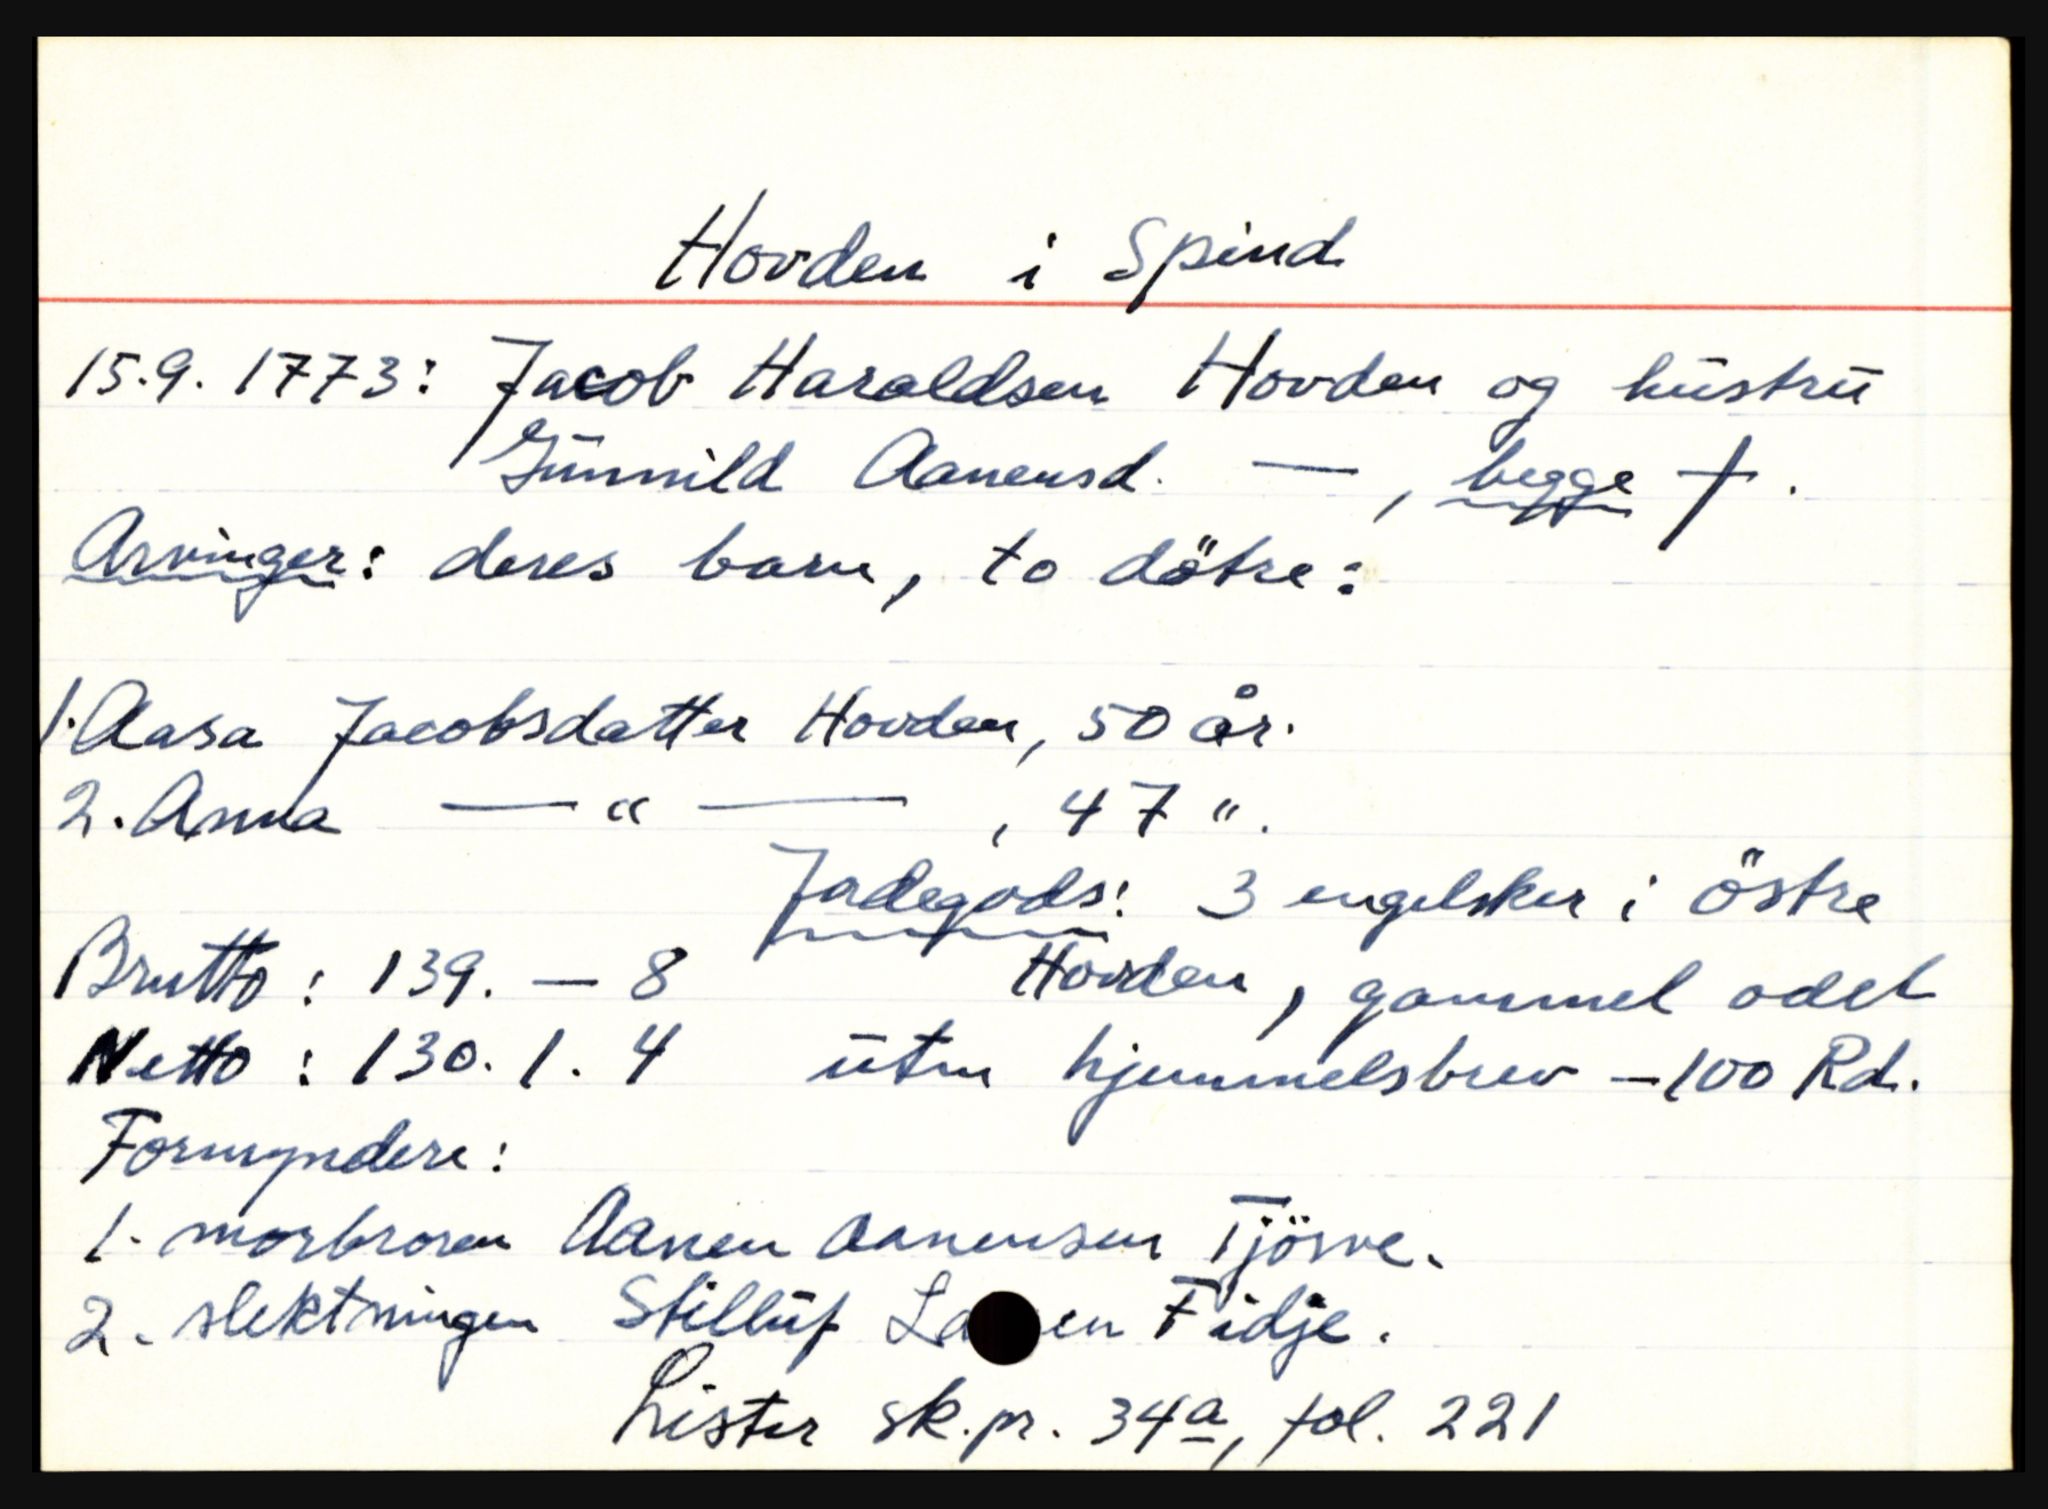 Hovden i Spind
15.9. 1773: Jacob Haraldsen Hovden og hustru
Gunnild Aanensd. — , begge †.
Arvinger: deres barn, to dötre:
1. Aasa Jacobsdatter Hovden, 50 år.
2. Anna — " — , 47 ".
Jordegods: 3 engelsker i östre
Brutto: 139. — 8 Hovden, gammel odel
Netto: 130. 1. 4 uten hjemmelsbrev — 100 Rd.
Formyndere:
1. morbroren Aanen Aanensen Tjörve.
2. slektningen Stilluf La en Fidje.
Lister sk.pr. 34a, fol. 221